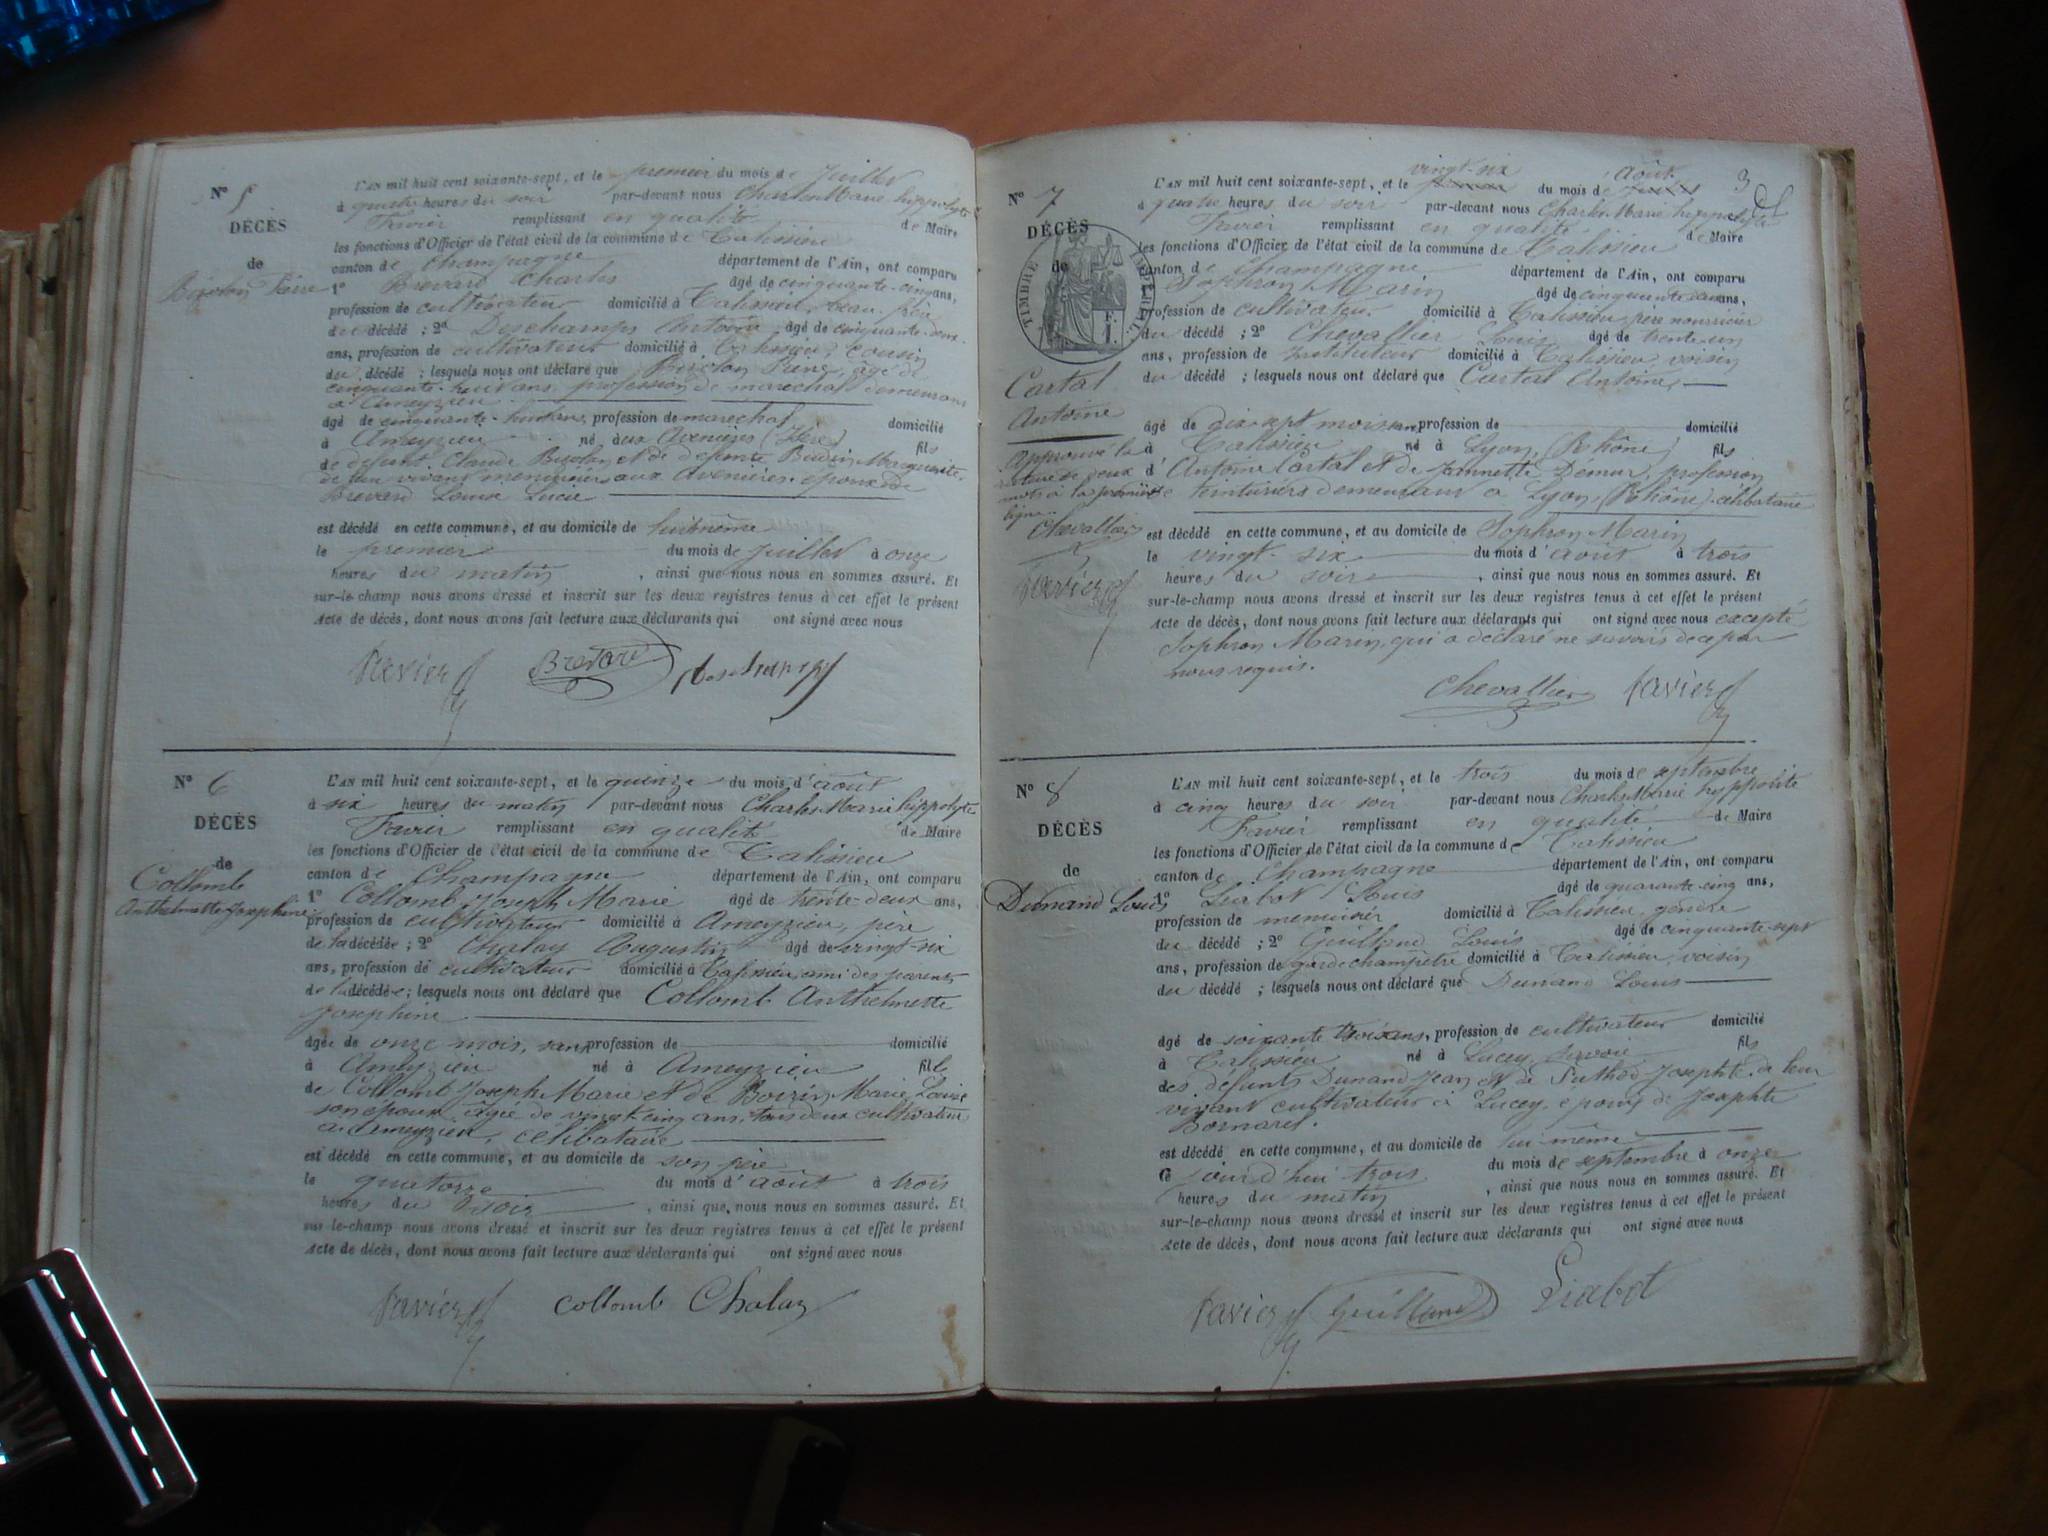 N° 5
DÉCÈS
de
Pierre
L'AN mil huit cent soixante-sept, et le premier du mois de Juillet
à quatre heures du soir par-devant nous Charles Marie hippolyte
Favier remplissant en qualité de Maire
les fonctions d'Officier de l'état civil de la commune de Talissieu
canton de Champagne département de l'Ain, ont comparu
1° Brevard Charles âgé de cinquante-cinq ans,
profession de cultivateur domicilié à Talissieu, beau-frère
du décédé ; 2° Deschamps Antoine âgé de cinquante-deux
ans, profession de cultivateur domicilié à Talissieu, cousin
du décédé ; lesquels nous ont déclaré que Pierre, âgé de
cinquante-huit ans, profession de maréchal demeurant
à Ameyzieu
âgé de cinquante-huit ans, profession de maréchal domicilié
à Ameyzieu né aux Avenières (Isère) fils
de défunt Claude et de défunte Marguerite,
de leur vivant aux Avenières, époux de
Brevard Louise Lucie
est décédé en cette commune, et au domicile de lui-même
le premier du mois de Juillet à onze
heures du matin, ainsi que nous nous en sommes assuré. Et
sur-le-champ nous avons dressé et inscrit sur les deux registres tenus à cet effet le présent
Acte de décès, dont nous avons fait lecture aux déclarants qui ont signé avec nous
Favier Brevard Deschamps
N° 6
DÉCÈS
de
Collomb
Anthelmette Josephine
L'AN mil huit cent soixante-sept, et le quinze du mois d'août
à six heures du matin par-devant nous Charles Marie hippolyte
Favier remplissant en qualité de Maire
les fonctions d'Officier de l'état civil de la commune de Talissieu
canton de Champagne département de l'Ain, ont comparu
1° Collomb Joseph Marie âgé de trente-deux ans,
profession de cultivateur domicilié à Ameyzieu, père
de la décédée ; 2° Chalay Augustin âgé de vingt-six
ans, profession de cultivateur domicilié à Talissieu, ami des parents
de la décédée ; lesquels nous ont déclaré que Collomb Anthelmette
Josephine
âgée de onze mois, sans profession de domicilié
à Ameyzieu né à Ameyzieu fille
de Collomb Joseph Marie et de Marie Louise
son épouse âgée de vingt-cinq ans, tous deux cultivateurs
à Ameyzieu, célibataire
est décédé en cette commune, et au domicile de son père
le quatorze du mois d'août à trois
heures du soir, ainsi que nous nous en sommes assuré. Et
sur-le-champ nous avons dressé et inscrit sur les deux registres tenus à cet effet le présent
Acte de décès, dont nous avons fait lecture aux déclarants qui ont signé avec nous
Favier Collomb Chalay
3
N° 7
DÉCÈS
de
TIMBRE IMPÉRIAL
F.
1.
Cartal
Antoine
Approuvé la
rature de deux
mots à la première
ligne.
Chevallier
Favier
vingt-six août
L'AN mil huit cent soixante-sept, et le du mois de
à quatre heures du soir par-devant nous Charles Marie hippolyte
Favier remplissant en qualité de Maire
les fonctions d'Officier de l'état civil de la commune de Talissieu
canton de Champagne département de l'Ain, ont comparu
Sophron Marin âgé de cinquante ans,
profession de cultivateur domicilié à Talissieu, père nourricier
du décédé ; 2° Chevallier Louis âgé de trente-un
ans, profession de Instituteur domicilié à Talissieu, voisin
du décédé ; lesquels nous ont déclaré que Cartal Antoine,
âgé de dix-sept mois profession de domicilié
à Talissieu né à Lyon, (Rhône) fils
d'Antoine Cartal et de Jeannette Demur, profession
de teinturiers demeurant à Lyon, (Rhône) célibataire
est décédé en cette commune, et au domicile de Sophron Marin
le vingt-six du mois d'août à trois
heures du soir, ainsi que nous nous en sommes assuré. Et
sur-le-champ nous avons dressé et inscrit sur les deux registres tenus à cet effet le présent
Acte de décès, dont nous avons fait lecture aux déclarants qui ont signé avec nous excepté
Sophron Marin, qui a déclaré ne savoir de ce par
nous requis.
Chevallier Favier
N° 8
DÉCÈS
de
Dunand Louis
L'AN mil huit cent soixante-sept, et le trois du mois de septembre
à cinq heures du soir par-devant nous Charles Marie hyppolite
Favier remplissant en qualité de Maire
les fonctions d'Officier de l'état civil de la commune de Talissieu
canton de Champagne département de l'Ain, ont comparu
1° Liabot Louis âgé de quarante-cinq ans,
profession de menuisier domicilié à Talissieu, gendre
du décédé ; 2° Guilland Louis âgé de cinquante-sept
ans, profession de garde champêtre domicilié à Talissieu, voisin
du décédé ; lesquels nous ont déclaré que Dunand Louis
âgé de soixante trois ans, profession de cultivateur domicilié
à Talissieu né à Lucey, Savoie fils
des défunts Dunand Jean et de Josephte, de leur
vivant cultivateur à Lucey, époux de Josephte
Bornarel.
est décédé en cette commune, et au domicile de lui-même
Ce jourd'hui trois du mois de septembre à onze
heures du matin, ainsi que nous nous en sommes assuré. Et
sur-le-champ nous avons dressé et inscrit sur les deux registres tenus à cet effet le présent
Acte de décès, dont nous avons fait lecture aux déclarants qui ont signé avec nous
Favier Guilland Liabot